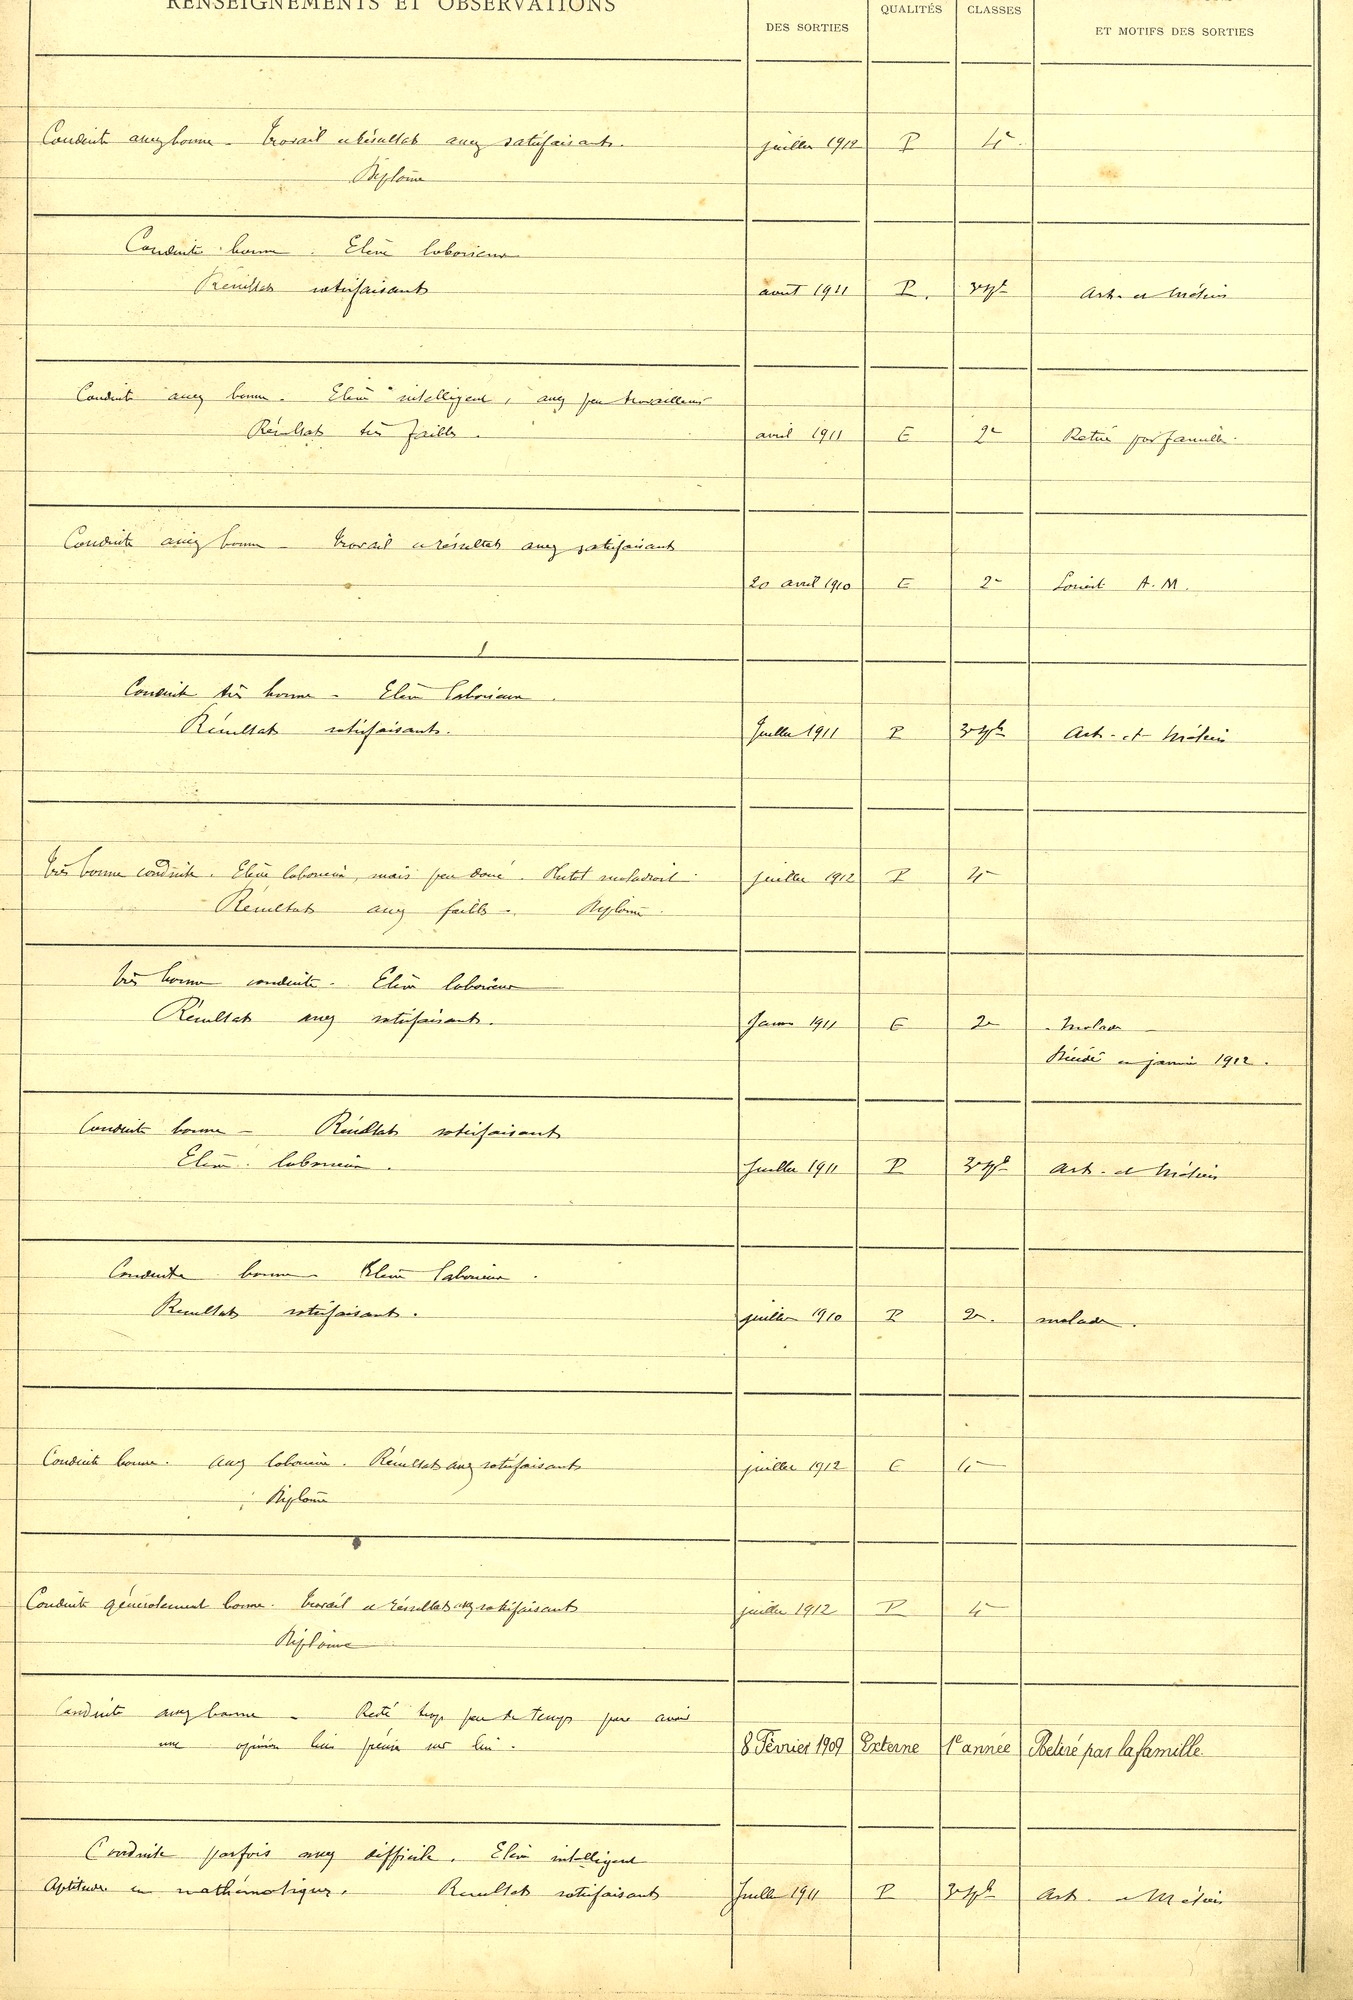 RENSEIGNEMENTS ET OBSERVATIONS
DES SORTIES
QUALITÉS
CLASSES
ET MOTIFS DES SORTIES
Conduite assez bonne - Travail et résultats assez satisfaisants. juillet 1912 P 4e
Diplome
Conduite bonne. Elève laborieux
Résultats satisfaisants août 1911 P. Arts et Métiers
Conduite assez bonne. Elève intelligent, assez peu travailleur
Résultats très faibles. avril 1911 E 2e Retiré par famille.
Conduite assez bonne - Travail et résultats assez satisfaisants
20 avril 1910 E 2e A.M.
Conduite très bonne - Elève laborieux.
Résultats satisfaisants. Juillet 1911 P Arts et Métiers
Très bonne conduite. Elève laborieux, mais peu doué. Plutot maladroit. juillet 1912 P 4e
Résultats assez faibles. Diplome.
Très bonne conduite. Elève laborieux
Résultats assez satisfaisants. Janv 1911 E 2e Malade -
en janvier 1912.
Conduite bonne - Résultats satisfaisants
Elève laborieux. Juillet 1911 P Arts et Métiers
Conduite bonne - Elève laborieux.
Resultats satisfaisants. juillet 1910 P 2e. malade.
Conduite bonne. assez laborieux. Résultats assez satisfaisants juillet 1912 E 4e
Diplome
Conduite générolement bonne. Travail et résultats assez satisfaisants juillet 1912 P 4e
Diplome
Conduite assez bonne - Resté trop peu de temps pour avoir
une opinion bien précise sur lui. 8 Février 1909 Externe 1e année Retiré par la famille.
Conduite parfois assez difficile. Elève intelligent
Aptitudes en mathématiques. Resultats satisfaisants Juillet 1911 P Arts et Métiers